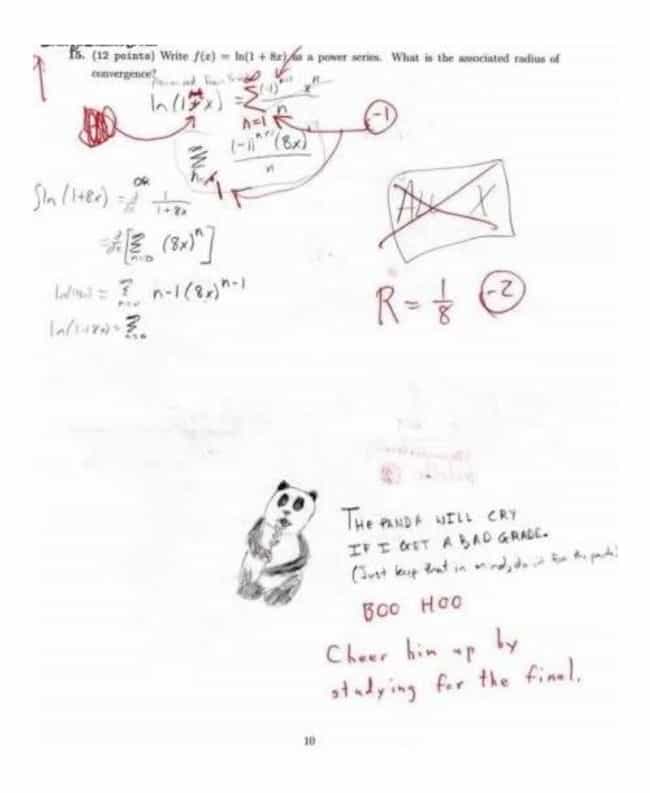 15. (12 points) Write f(x) = ln(1 + 8x) as a power series. What is the associated radius of
convergence?
ln(1+x) = Σ (-1)ⁿ⁺¹ xⁿ / n
n=1
-1
Σ (-1)ⁿ⁺¹ (8x) / n
1
OR
∫ln(1+8x) = d/dx 1/(1+8x)
= d/dx [Σ n=0 (8x)ⁿ]
All X
R = 1/8 -2
Σ n-1(8x)ⁿ⁻¹
ln(1+8x) = Σ
THE PANDA WILL CRY
IF I GET A BAD GRADE.
(Just keep that in mind, do it for the panda)
BOO HOO
Cheer him up by
studying for the final.
10